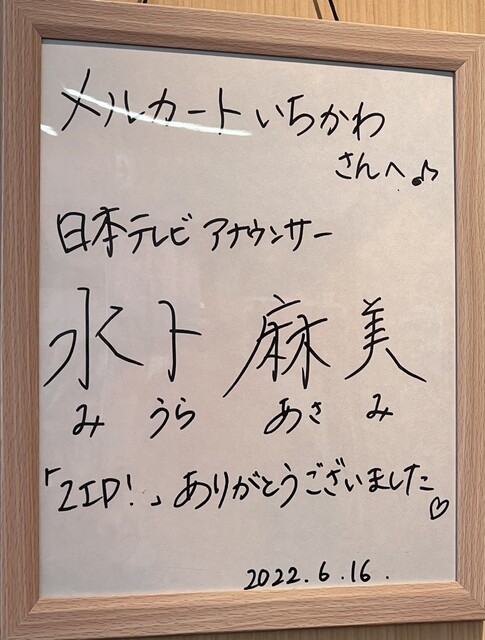 メルカートいちかわ
さんへ♪
日本テレビ アナウンサー
水卜 麻美
み うら あさ み
「ZIP!」ありがとうございました♡
2022.6.16.